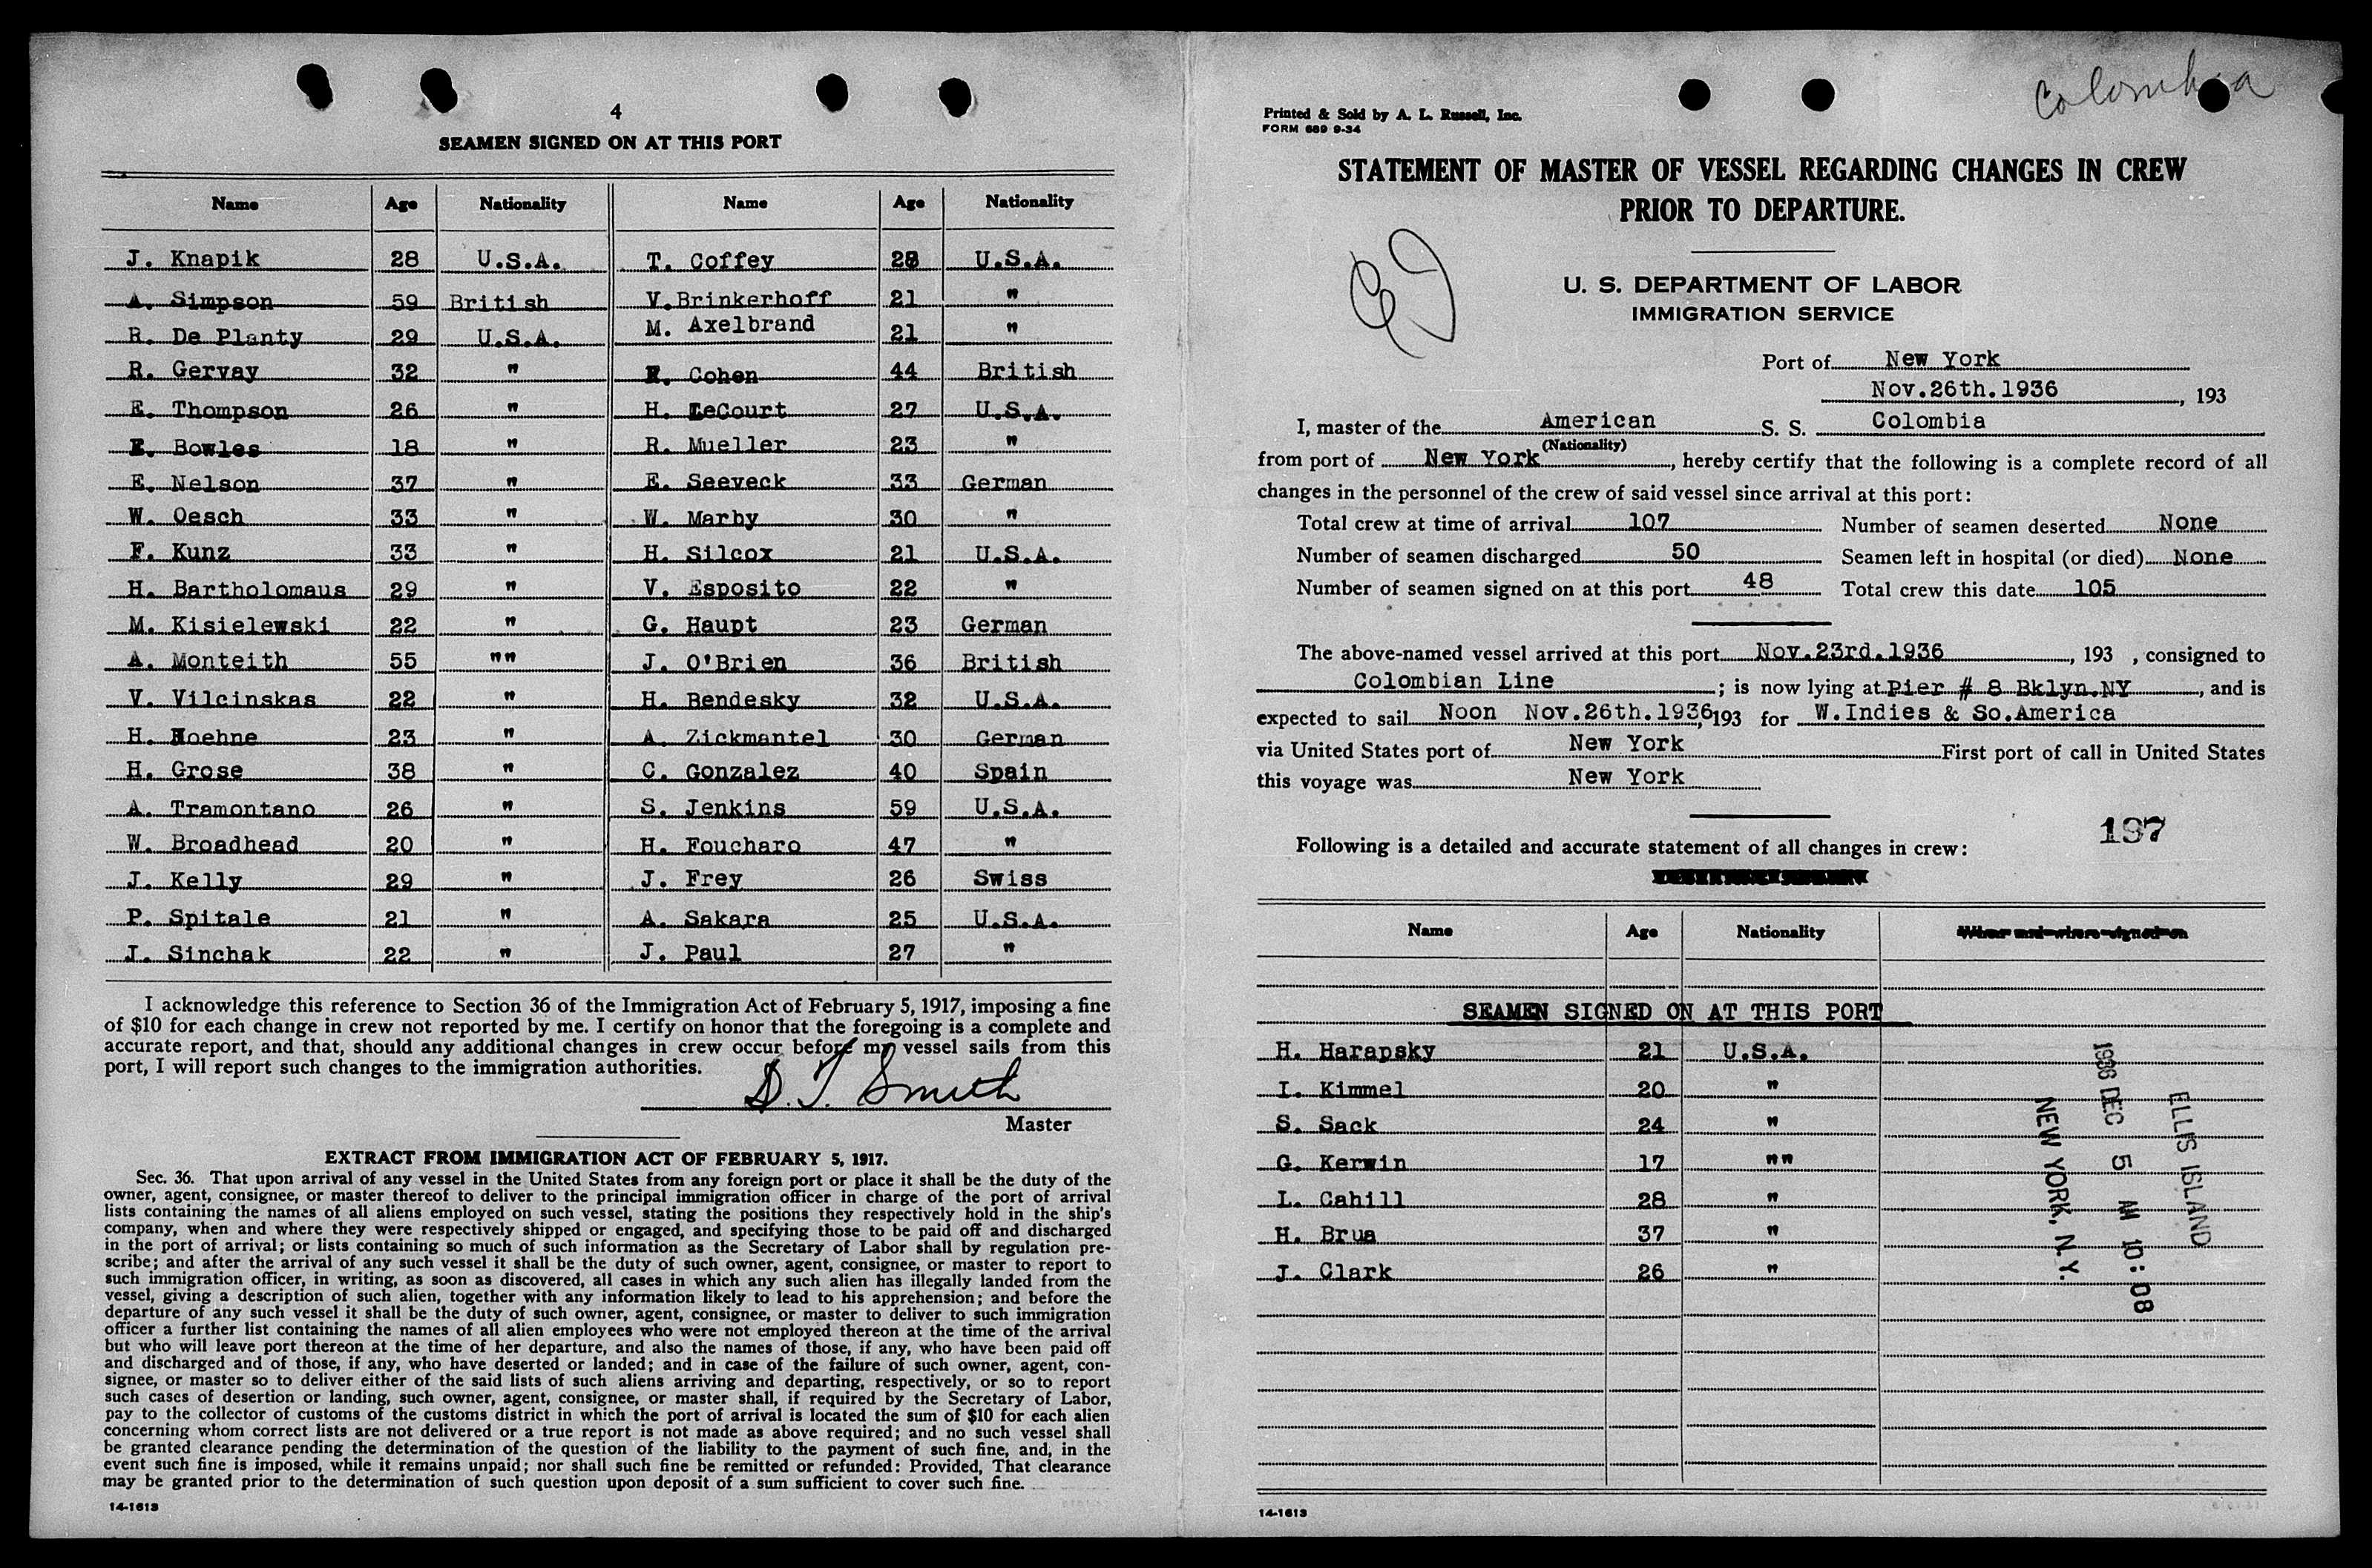 4
SEAMEN SIGNED ON AT THIS PORT
Name Age Nationality Name Age Nationality
J. Knapik 28 U.S.A. T. Coffey 28 U.S.A.
A. Simpson 59 British V.Brinkerhoff 21 "
R. De Planty 29 U.S.A. M. Axelbrand 21 "
R. Gervay 32 " Cohen 44 British
E. Thompson 26 " H. LeCourt 27 U.S.A.
E. Bowles 18 " R. Mueller 23 "
E. Nelson 37 " E. Seeveck 33 German
W. Oesch 33 " W. Marby 30 "
F. Kunz 33 " H. Silcox 21 U.S.A.
H. Bartholomaus 29 " V. Esposito 22 "
M. Kisielewski 22 " G. Haupt 23 German
A. Monteith 55 "" J. O'Brien 36 British
V. Vilcinskas 22 " H. Bendesky 32 U.S.A.
H. Hoehne 23 " A. Zickmantel 30 German
H. Grose 38 " C. Gonzalez 40 Spain
A. Tramontano 26 " S. Jenkins 59 U.S.A.
W. Broadhead 20 " H. Foucharo 47 "
J. Kelly 29 " J. Frey 26 Swiss
P. Spitale 21 " A. Sakara 25 U.S.A.
J. Sinchak 22 " J. Paul 27 "
I acknowledge this reference to Section 36 of the Immigration Act of February 5, 1917, imposing a fine
of $10 for each change in crew not reported by me. I certify on honor that the foregoing is a complete and
accurate report, and that, should any additional changes in crew occur before my vessel sails from this
port, I will report such changes to the immigration authorities.
D. T. Smith
Master
EXTRACT FROM IMMIGRATION ACT OF FEBRUARY 5, 1917.
Sec. 36. That upon arrival of any vessel in the United States from any foreign port or place it shall be the duty of the
owner, agent, consignee, or master thereof to deliver to the principal immigration officer in charge of the port of arrival
lists containing the names of all aliens employed on such vessel, stating the positions they respectively hold in the ship's
company, when and where they were respectively shipped or engaged, and specifying those to be paid off and discharged
in the port of arrival; or lists containing so much of such information as the Secretary of Labor shall by regulation pre-
scribe; and after the arrival of any such vessel it shall be the duty of such owner, agent, consignee, or master to report to
such immigration officer, in writing, as soon as discovered, all cases in which any such alien has illegally landed from the
vessel, giving a description of such alien, together with any information likely to lead to his apprehension; and before the
departure of any such vessel it shall be the duty of such owner, agent, consignee, or master to deliver to such immigration
officer a further list containing the names of all alien employees who were not employed thereon at the time of the arrival
but who will leave port thereon at the time of her departure, and also the names of those, if any, who have been paid off
and discharged and of those, if any, who have deserted or landed; and in case of the failure of such owner, agent, con-
signee, or master so to deliver either of the said lists of such aliens arriving and departing, respectively, or so to report
such cases of desertion or landing, such owner, agent, consignee, or master shall, if required by the Secretary of Labor,
pay to the collector of customs of the customs district in which the port of arrival is located the sum of $10 for each alien
concerning whom correct lists are not delivered or a true report is not made as above required; and no such vessel shall
be granted clearance pending the determination of the question of the liability to the payment of such fine, and, in the
event such fine is imposed, while it remains unpaid; nor shall such fine be remitted or refunded: Provided, That clearance
may be granted prior to the determination of such question upon deposit of a sum sufficient to cover such fine.
14-1613
Colombia
Printed & Sold by A. L. Russell, Inc.
FORM 689 9-34
STATEMENT OF MASTER OF VESSEL REGARDING CHANGES IN CREW
PRIOR TO DEPARTURE.
U. S. DEPARTMENT OF LABOR
IMMIGRATION SERVICE
Port of New York
Nov.26th.1936, 193
I, master of the American S. S. Colombia
(Nationality)
from port of New York, hereby certify that the following is a complete record of all
changes in the personnel of the crew of said vessel since arrival at this port:
Total crew at time of arrival 107 Number of seamen deserted None
Number of seamen discharged 50 Seamen left in hospital (or died) None
Number of seamen signed on at this port 48 Total crew this date 105
The above-named vessel arrived at this port Nov.23rd.1936, 193 , consigned to
Colombian Line ; is now lying at Pier # 8 Bklyn.NY, and is
expected to sail Noon Nov.26th.1936, 193 for W.Indies & So.America
via United States port of New York First port of call in United States
this voyage was New York
197
Following is a detailed and accurate statement of all changes in crew:
Name Age Nationality When and where signed on
SEAMEN SIGNED ON AT THIS PORT
H. Harapsky 21 U.S.A.
I. Kimmel 20 "
S. Sack 24 "
G. Kerwin 17 ""
L. Cahill 28 "
H. Brua 37 "
J. Clark 26 "
ELLIS ISLAND
1936 DEC 5 AM 10:08
NEW YORK, N.Y.